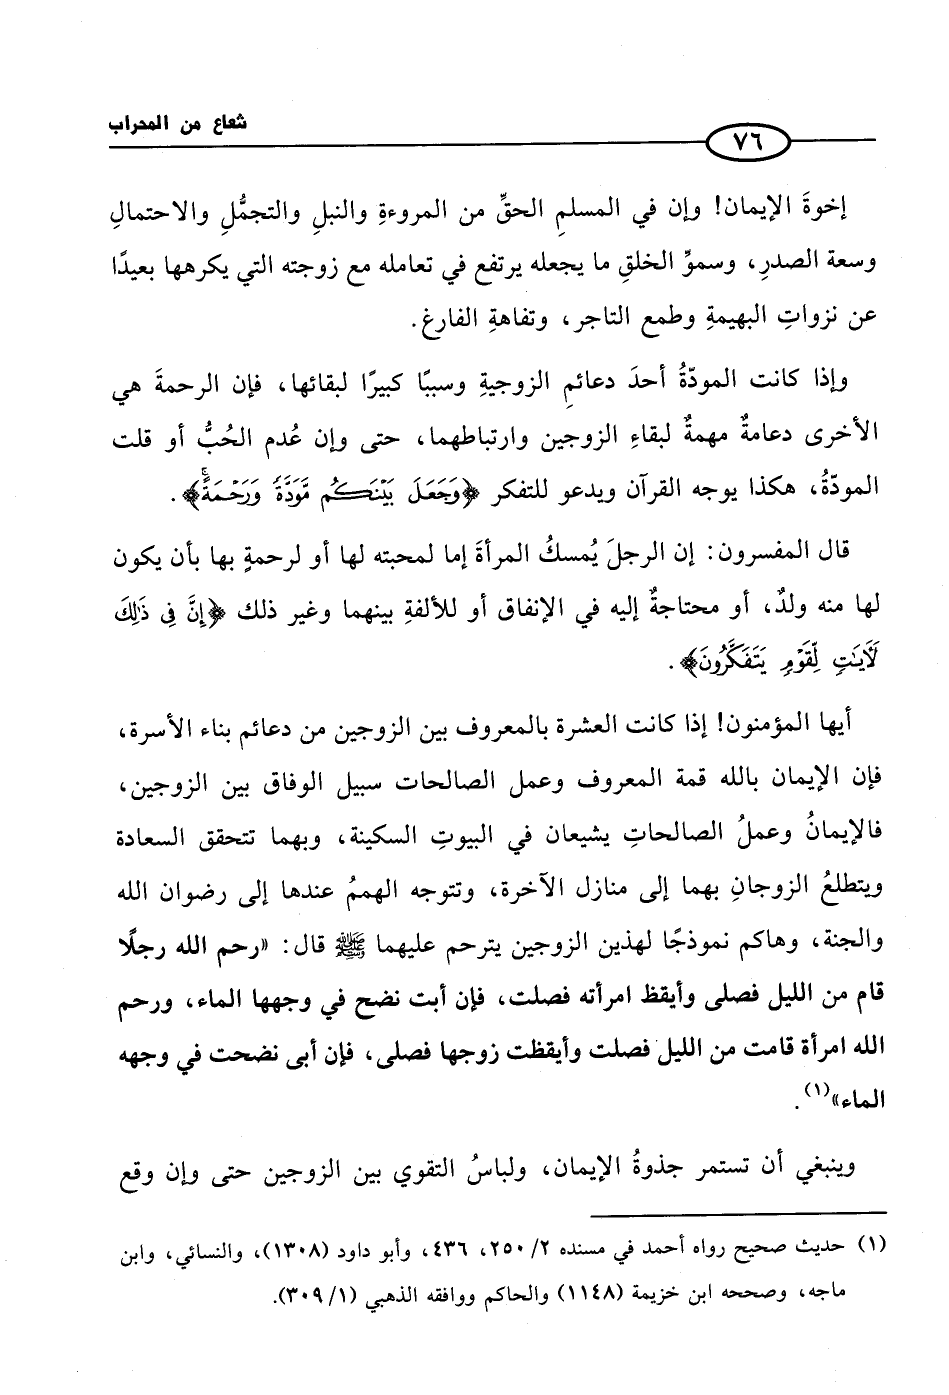 شعاع من المحراب
٧٦
إخوةَ الإيمان! وإن في المسلمِ الحقِّ من المروءةِ والنبلِ والتجمُّلِ والاحتمالِ
وسعة الصدرِ، وسموِّ الخلقِ ما يجعله يرتفع في تعامله مع زوجته التي يكرهها بعيدًا
عن نزواتِ البهيمةِ وطمع التاجر، وتفاهةِ الفارغ.
وإذا كانت المودّةُ أحدَ دعائمِ الزوجيةِ وسببًا كبيرًا لبقائها، فإن الرحمةَ هي
الأخرى دعامةٌ مهمةٌ لبقاءِ الزوجين وارتباطهما، حتى وإن عُدم الحُبُّ أو قلت
المودّةُ، هكذا يوجه القرآن ويدعو للتفكر ﴿وَجَعَلَ بَيْنَكُم مَّوَدَّةً وَرَحْمَةًۚ﴾.
قال المفسرون: إن الرجلَ يُمسكُ المرأةَ إما لمحبته لها أو لرحمةٍ بها بأن يكون
لها منه ولدٌ، أو محتاجةٌ إليه في الإنفاق أو للألفةِ بينهما وغير ذلك ﴿إِنَّ فِي ذَٰلِكَ
لَآيَٰتٍ لِّقَوْمٍ يَتَفَكَّرُونَ﴾.
أيها المؤمنون! إذا كانت العشرة بالمعروف بين الزوجين من دعائم بناء الأسرة،
فإن الإيمان بالله قمة المعروف وعمل الصالحات سبيل الوفاق بين الزوجين،
فالإيمانُ وعملُ الصالحاتِ يشيعان في البيوتِ السكينة، وبهما تتحقق السعادة
ويتطلعُ الزوجانِ بهما إلى منازل الآخرة، وتتوجه الهممُ عندها إلى رضوان الله
والجنة، وهاكم نموذجًا لهذين الزوجين يترحم عليهما ﷺ قال: «رحم الله رجلًا
قام من الليل فصلى وأيقظ امرأته فصلت، فإن أبت نضح في وجهها الماء، ورحم
الله امرأة قامت من الليل فصلت وأيقظت زوجها فصلى، فإن أبى نضحت في وجهه
الماء»(١).
وينبغي أن تستمر جذوةُ الإيمان، ولباسُ التقوي بين الزوجين حتى وإن وقع
(١) حديث صحيح رواه أحمد في مسنده ٢/ ٢٥٠، ٤٣٦، وأبو داود (١٣٠٨)، والنسائي، وابن
ماجه، وصححه ابن خزيمة (١١٤٨) والحاكم ووافقه الذهبي (١/ ٣٠٩).